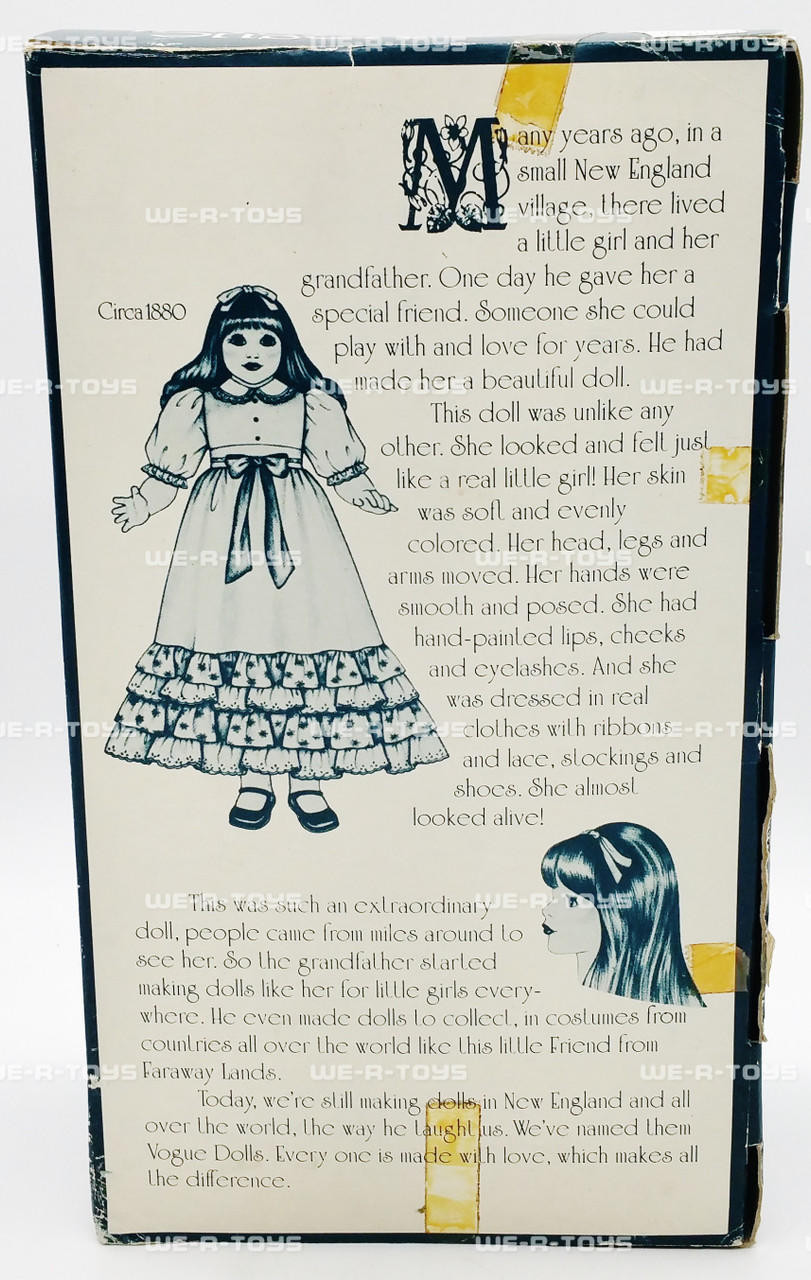 Many years ago, in a
small New England
village, there lived
a little girl and her
grandfather. One day he gave her a
Circa 1880
special friend. Someone she could
play with and love for years. He had
made her a beautiful doll.
This doll was unlike any
other. She looked and felt just
like a real little girl! Her skin
was soft and evenly
colored. Her head, legs and
arms moved. Her hands were
smooth and posed. She had
hand-painted lips, cheeks
and eyelashes. And she
was dressed in real
clothes with ribbons
and lace, stockings and
shoes. She almost
looked alive!
This was such an extraordinary
doll, people came from miles around to
see her. So the grandfather started
making dolls like her for little girls every-
where. He even made dolls to collect, in costumes from
countries all over the world like this little Friend from
Faraway Lands.
Today, we're still making dolls in New England and all
over the world, the way he taught us. We've named them
Vogue Dolls. Every one is made with love, which makes all
the difference.
WE-R-TOYS